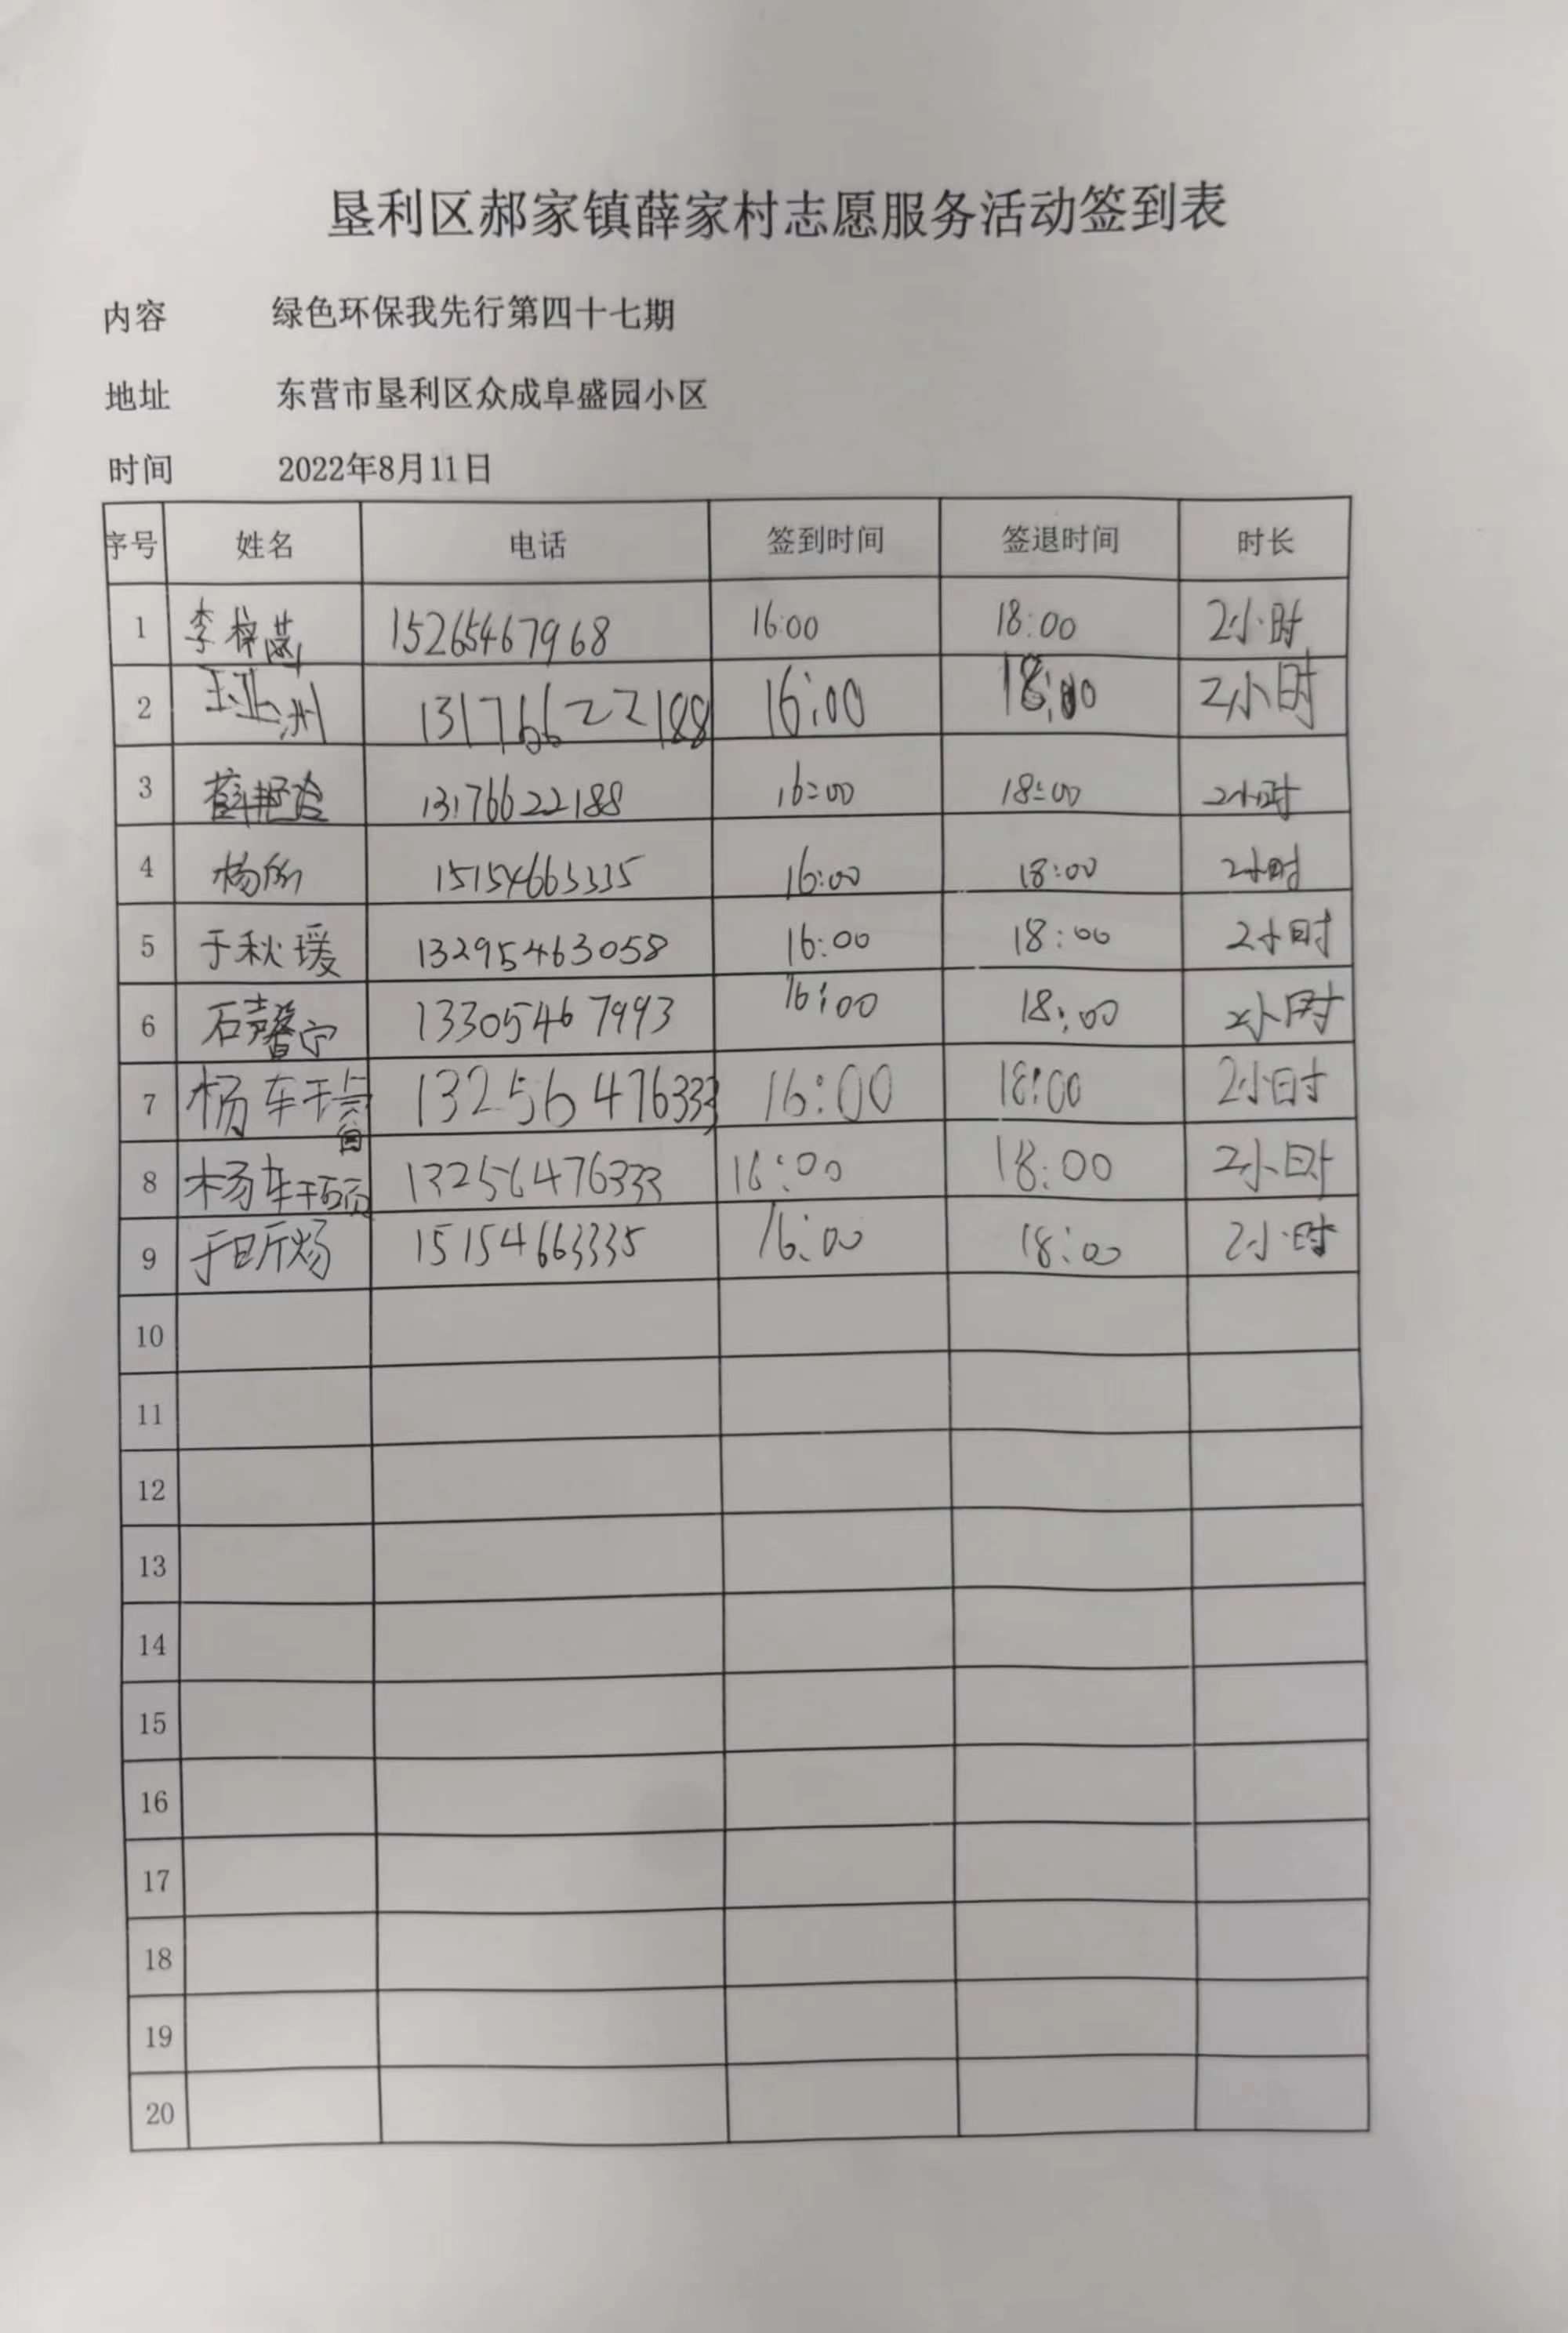 垦利区郝家镇薛家村志愿服务活动签到表
内容 绿色环保我先行第四十七期
地址 东营市垦利区众成阜盛园小区
时间 2022年8月11日
序号 姓名 电话 签到时间 签退时间 时长
1 李梓 15265467968 16:00 18:00 2小时
2 王亚洲 13176622188 16:00 18:00 2小时
3 薛艳玲 13176622188 16:00 18:00 2小时
4 杨 15154663335 16:00 18:00 2小时
5 于秋瑗 13295463058 16:00 18:00 2小时
6 石馨宁 13305467993 16:00 18:00 2小时
7 杨轩 13256476333 16:00 18:00 2小时
8 杨轩硕 13256476333 16:00 18:00 2小时
9 于昕炀 15154663335 16:00 18:00 2小时
10
11
12
13
14
15
16
17
18
19
20